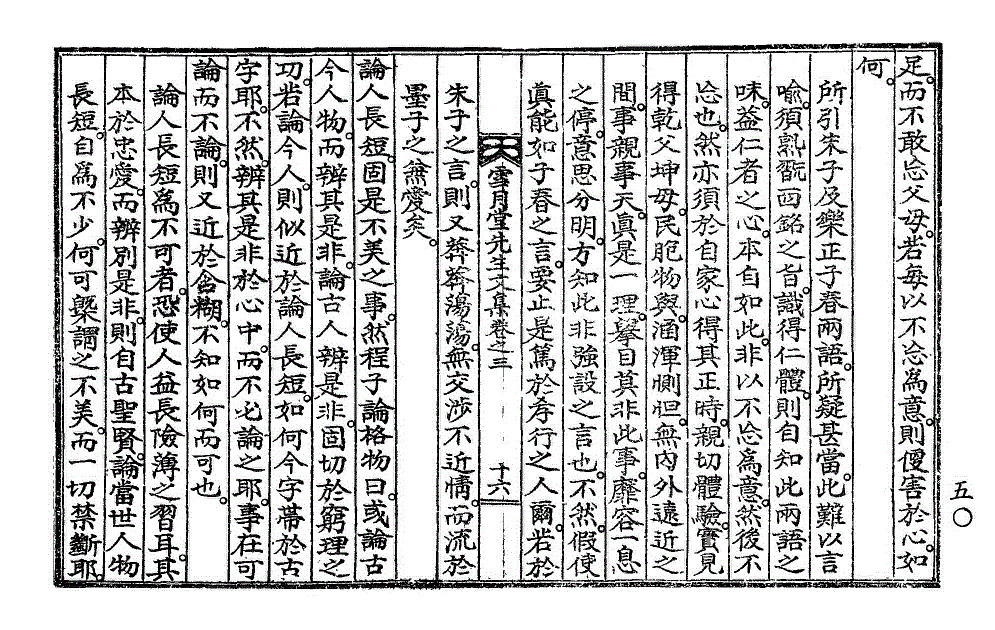 足。而不敢忘父母。若每以不忘爲意。則便害於心。如
何。
所引朱子及樂正子春兩語。所疑甚當。此難以言
喩。須熟翫西銘之旨。識得仁體。則自知此兩語之
味。蓋仁者之心。本自如此。非以不忘爲意。然後不
忘也。然亦須於自家心得其正時。親切體驗。實見
得乾父坤母。民胞物與。涵渾惻怛。無內外遠近之
間。事親事天。眞是一理。擧目莫非此事。靡容一息
之停。意思分明。方知此非強設之言也。不然。假使
眞能如子春之言。要止是篤於孝行之人爾。若於
雪月堂先生文集卷之三 十六
朱子之言。則又莽莽蕩蕩。無交涉不近情。而流於
墨子之兼愛矣。
論人長短。固是不美之事。然程子論格物曰。或論古
今人物。而辨其是非。論古人辨是非。固切於窮理之
功。若論今人。則似近於論人長短。如何今字帶於古
字耶。不然。辨其是非於心中。而不必論之耶。事在可
論而不論。則又近於含糊。不知如何而可也。
論人長短爲不可者。恐使人益長險薄之習耳。其
本於忠愛。而辨別是非。則自古聖賢。論當世人物
長短。自爲不少。何可槩謂之不美。而一切禁斷耶。
五〇